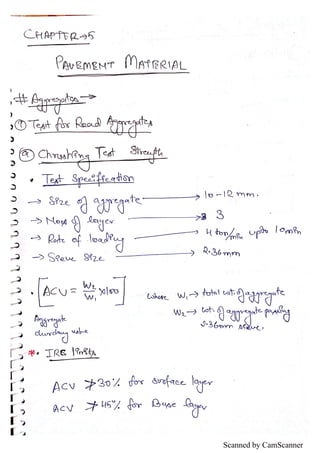 CHAPTER→5
PAVEMENT MATERIAL
# Aggregates →
① Test for Road Aggregates
ⓐ Chrushing Test Strength
• Test Specification
→ Size of aggregate → 10-12mm.
→ Nos of layer → 3
→ Rate of loading → 4 ton/min upto 10min
→ Sieve Size → 2.36mm
• [ACV = W2/W1 x100] Where W1 → total wt. of aggregate
W2 → wt. of aggregate passing
2.36mm sieve.
Aggregate
chrushing value
* • IRC limits
ACV ≯ 30% for surface layer
ACV ≯ 45% for Base layer
Scanned by CamScanner